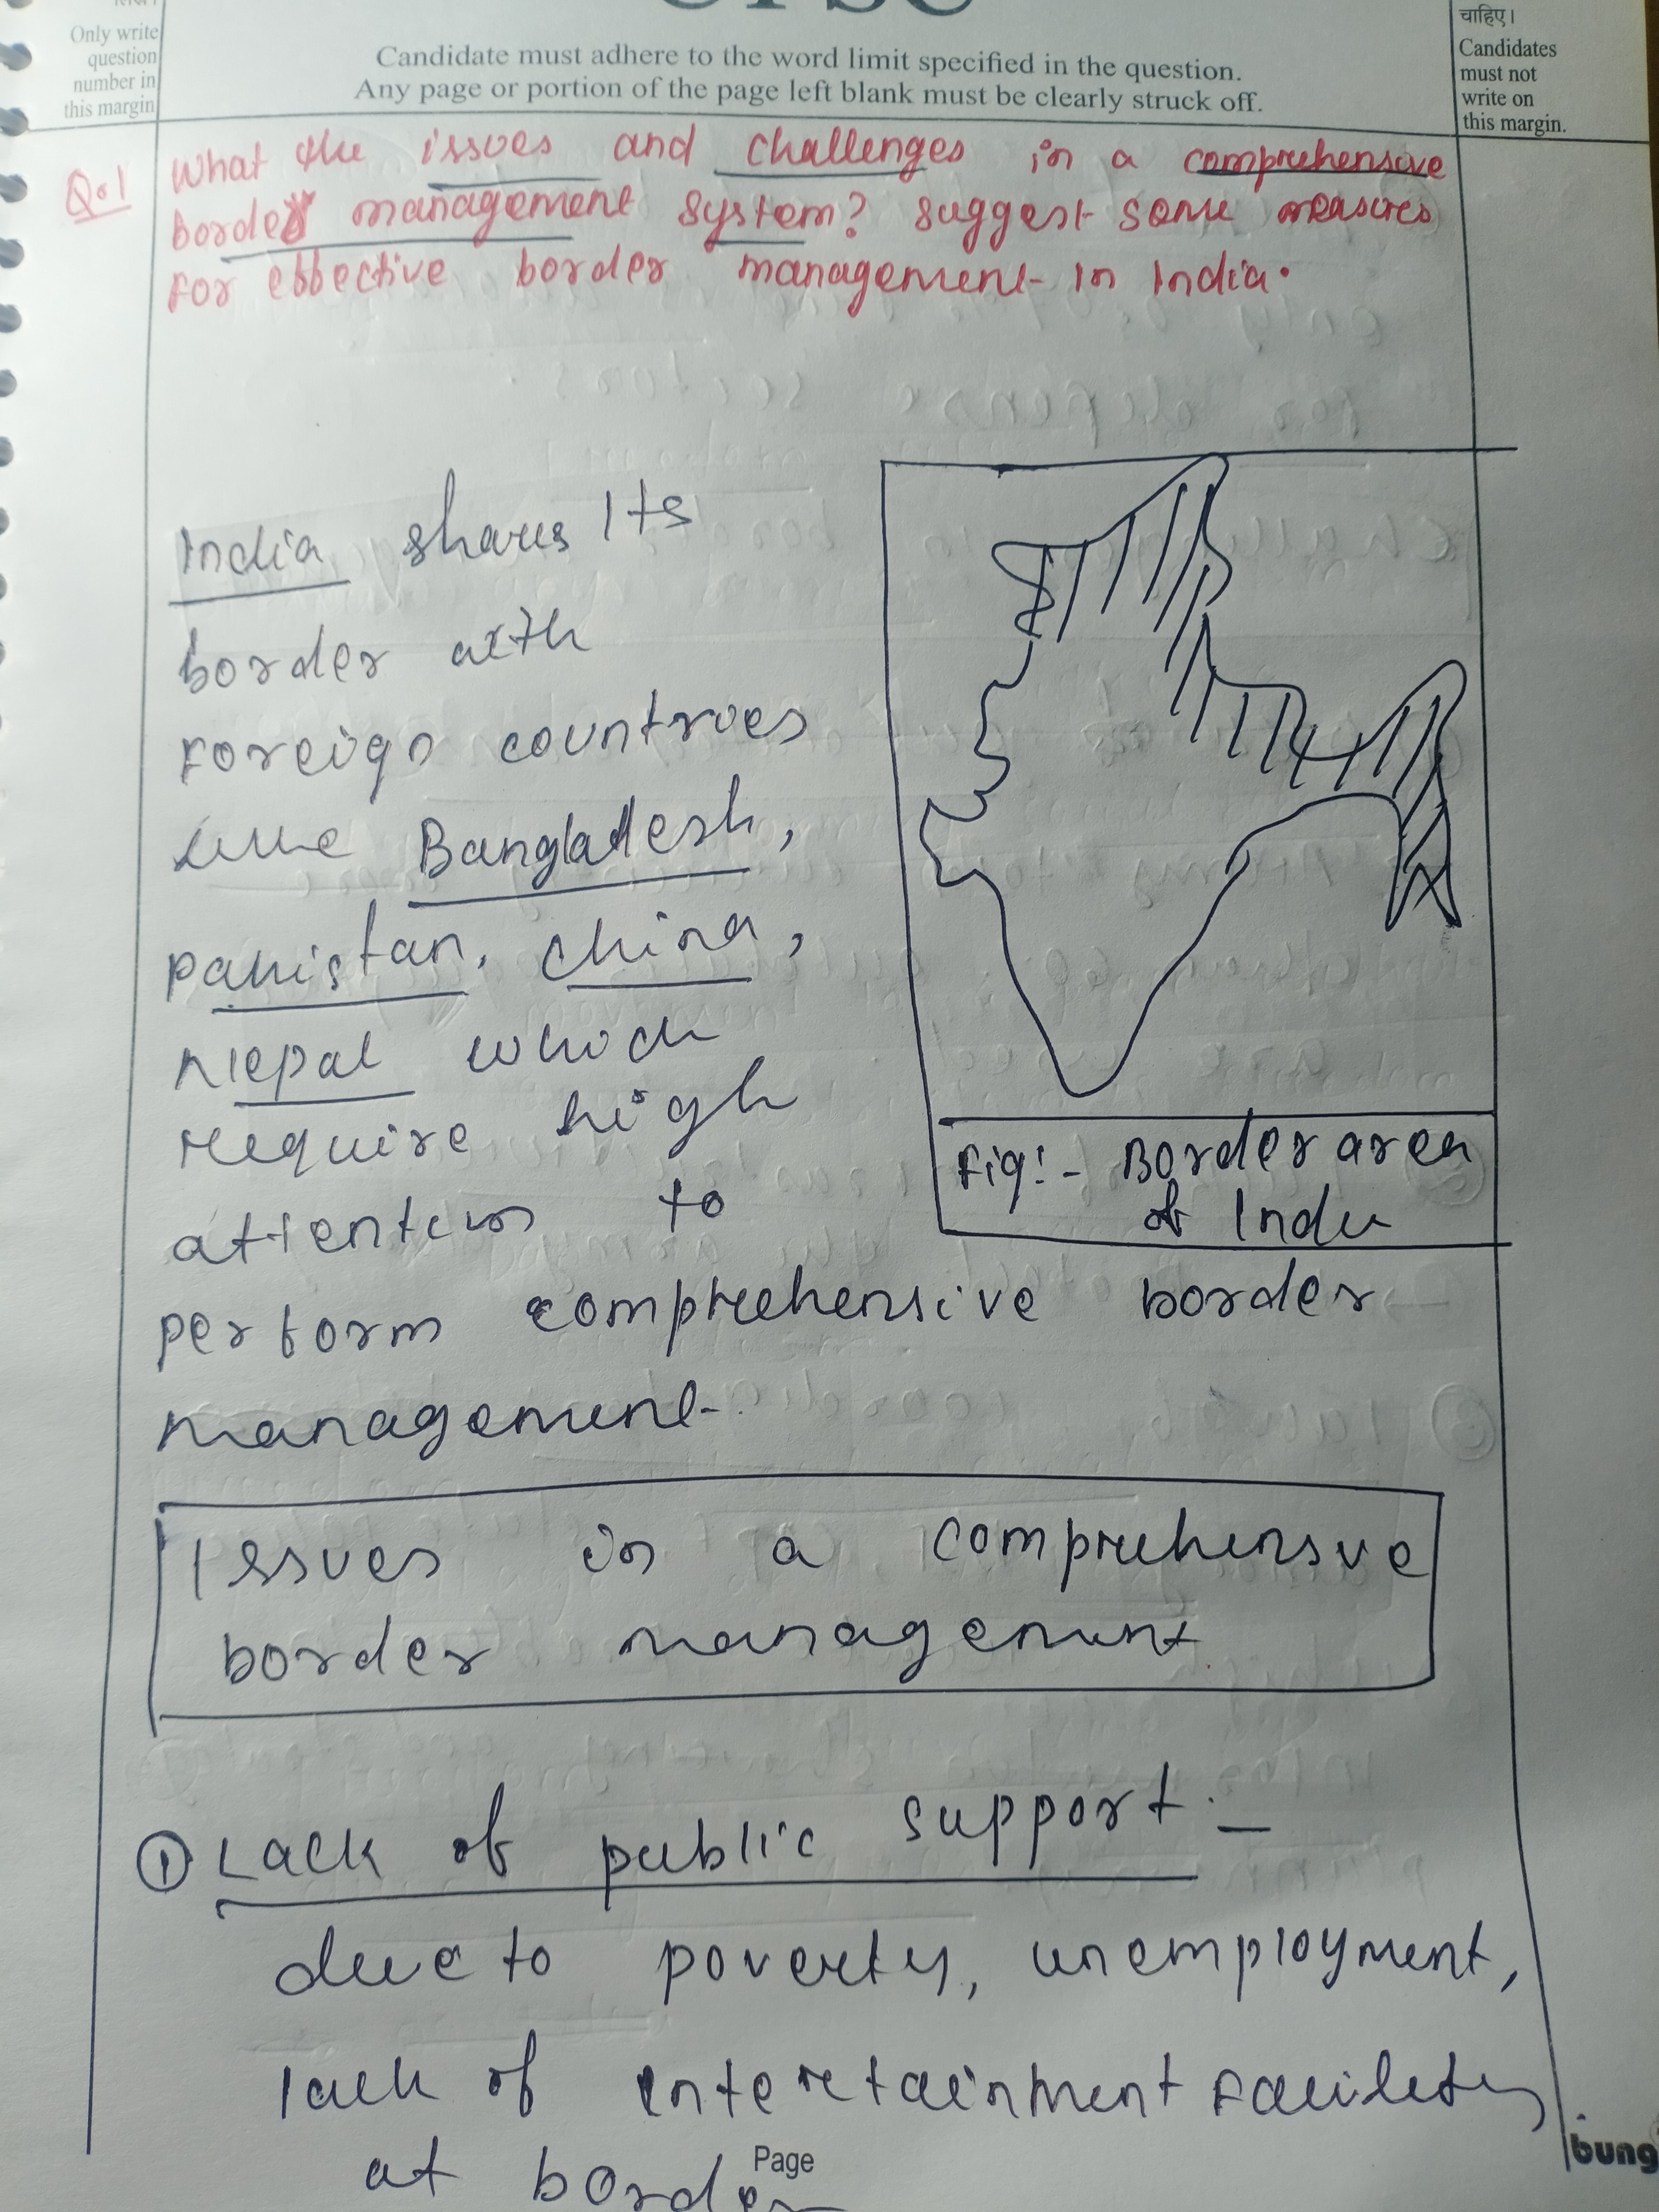 Only write
question
number in
this margin
Candidate must adhere to the word limit specified in the question.
Any page or portion of the page left blank must be clearly struck off.
चाहिए।
Candidates
must not
write on
this margin.
Q.1 What the issues and challenges in a comprehensive
border management system? suggest some measures
for effective border management in India.
India shares its
border with
Foreign countries
like Bangladesh,
Pakistan, China,
Nepal which
require high
attention to
perform comprehensive border
management.
Fig:- Border area
of India
Issues in a comprehensive
border management
① Lack of public support :-
due to poverty, unemployment,
lack of entertainment facility
at border
Page